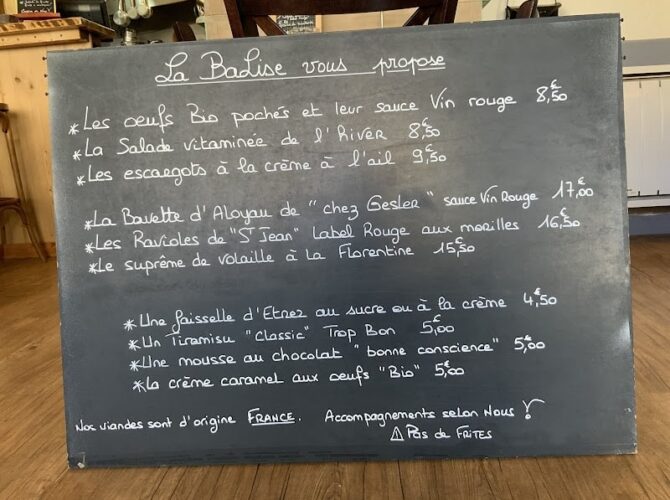 La BaLise vous propose
* Les oeufs Bio pochés et leur sauce Vin rouge 8,€50
* La Salade vitaminée de l'Hiver 8,€50
* Les escargots à la crème à l'ail 9,€50
* La Bavette d'Aloyau de "chez Gesler" sauce Vin Rouge 17,€00
* Les Ravioles de "St Jean" Label Rouge aux morilles 16,€50
* Le suprême de volaille à la Florentine 15,€50
* Une faisselle d'Etrez au sucre ou à la crème 4,€50
* Un Tiramisu "Classic" Trop Bon 5,€00
* Une mousse au chocolat "bonne conscience" 5,€00
* La crème caramel aux oeufs "Bio" 5,€00
Nos viandes sont d'origine FRANCE. Accompagnements selon Nous !
⚠ Pas de FRITES